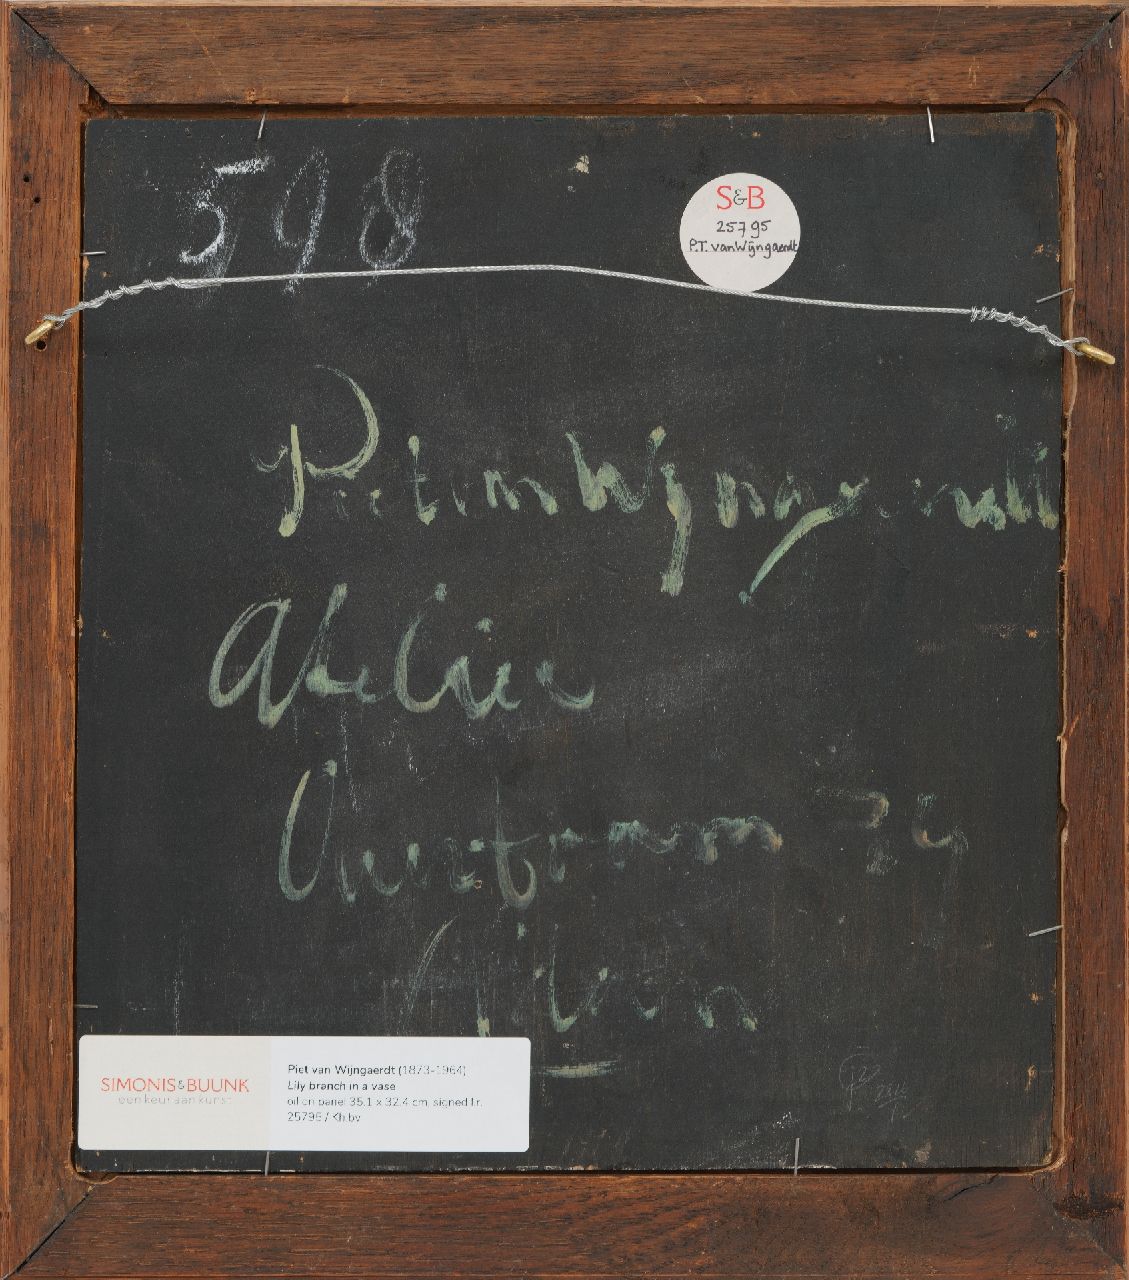 598
S&B
25795
P.T. van Wijngaerdt
Piet van Wijngaerdt
Atelier
Overtoom 24
SIMONIS&BUUNK
een keur aan kunst
Piet van Wijngaerdt (1873-1964)
Lily branch in a vase
oil on panel 35.1 x 32.4 cm, signed l.r.
25795 / Kh.bv